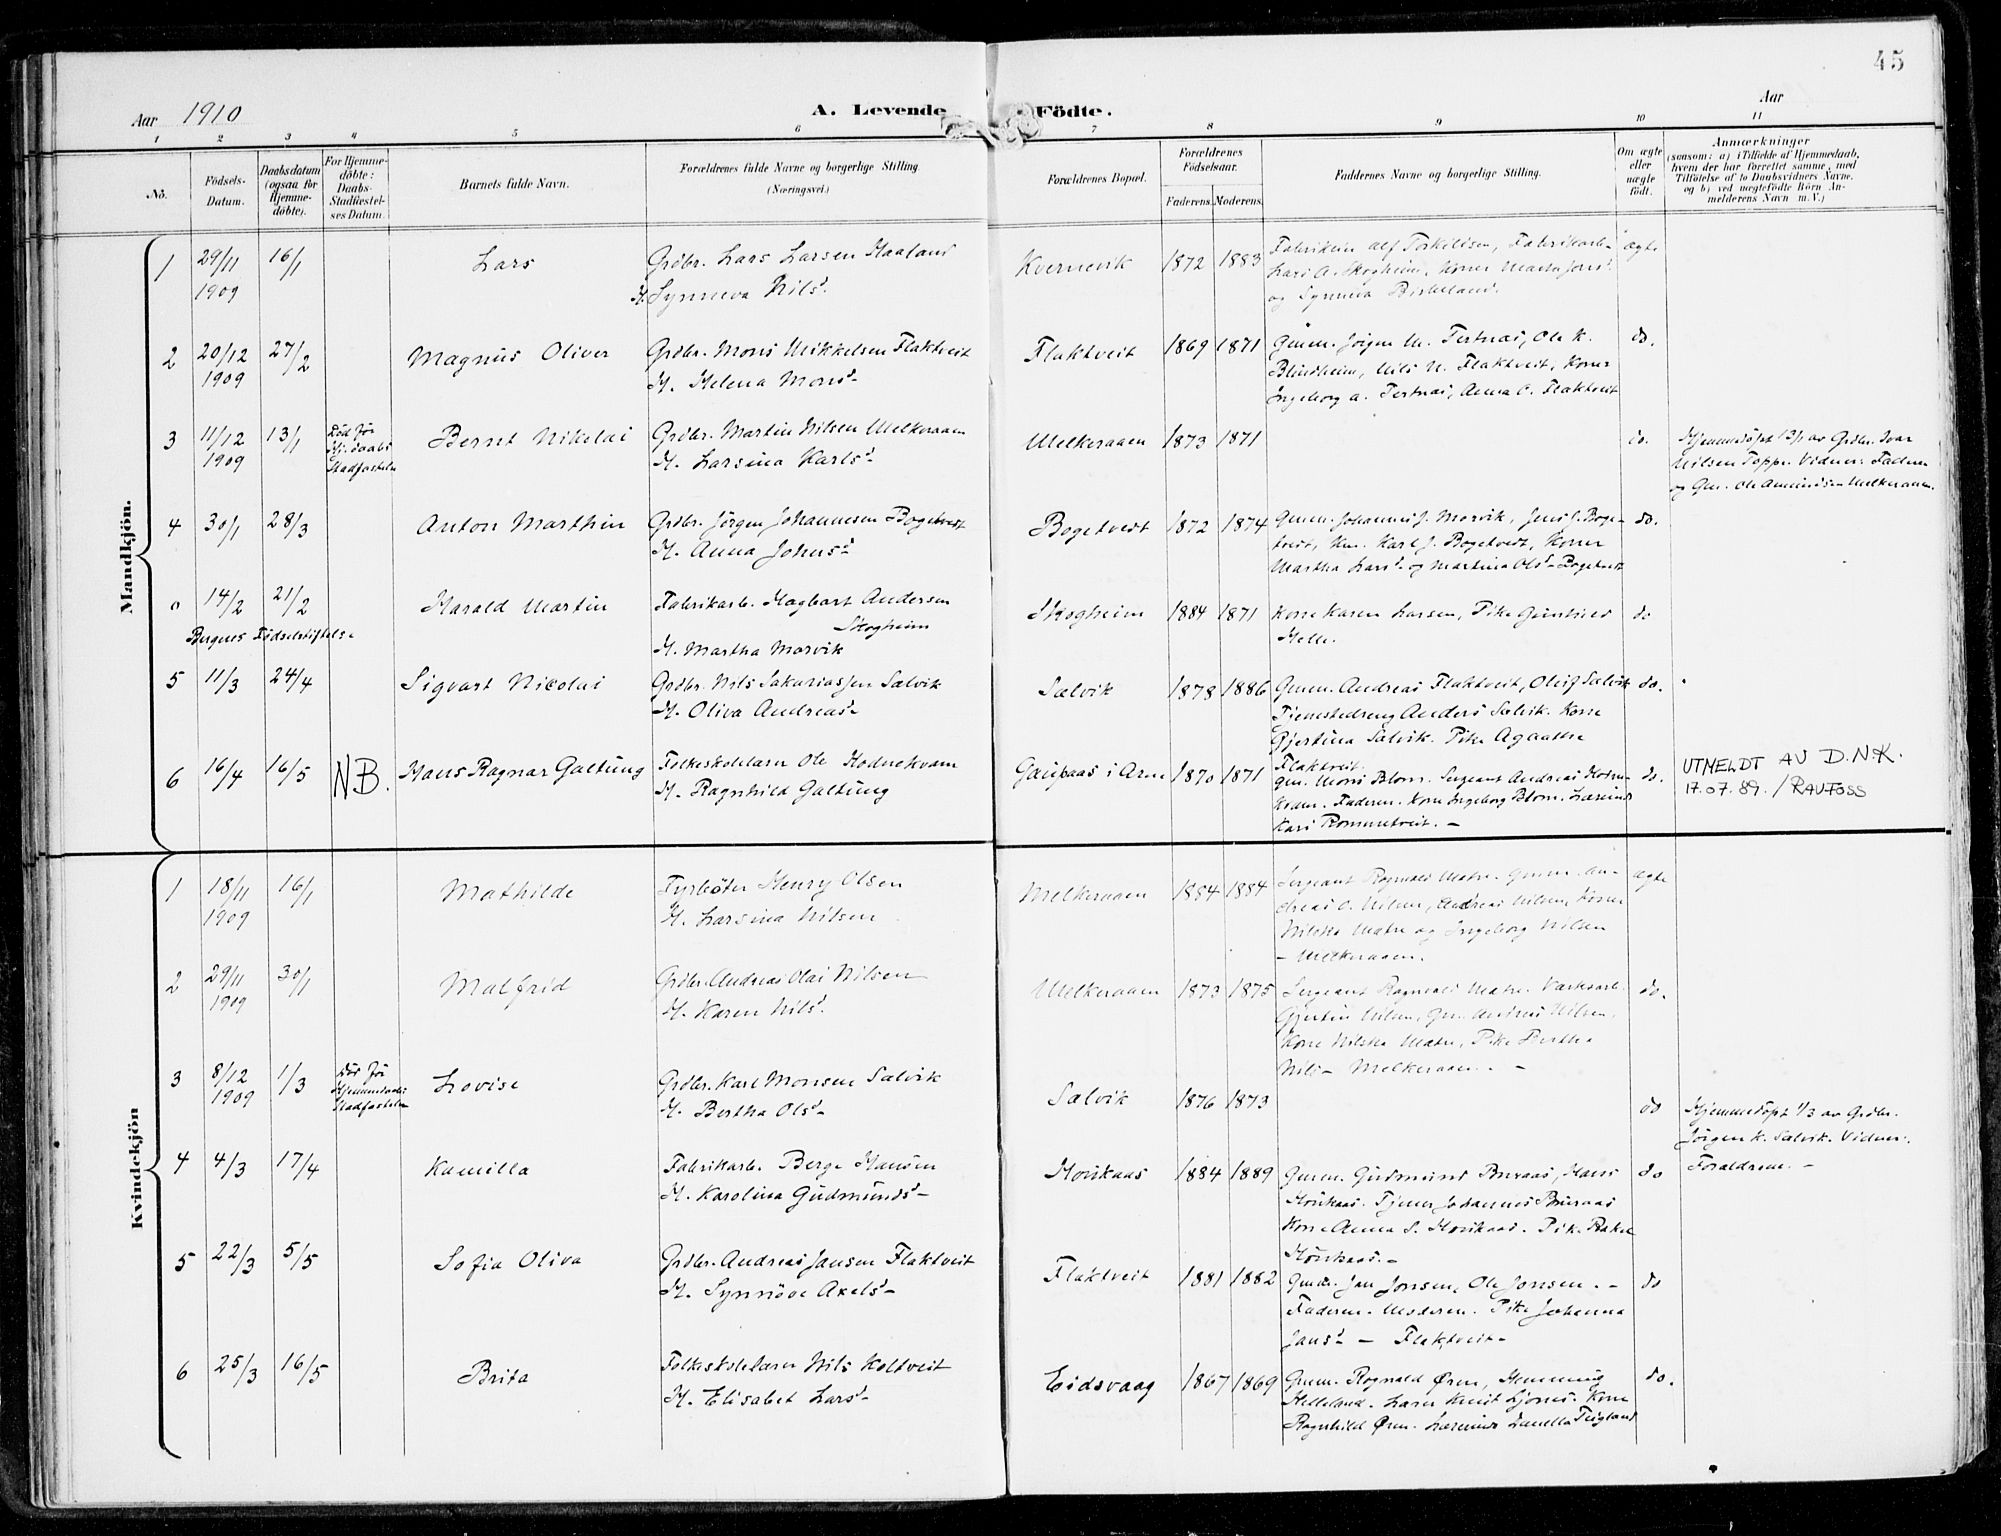 45
Aar 1910
A. Levende Födte.
Aar
1 2 3 4 5 6 7 8 9 10 11
No.
Födsels-Datum.
Daabsdatum (ogsaa for Hjemme-döbte).
For Hjemme-döbte: Daabs-Stadfæstel-ses Datum.
Barnets fulde Navn.
Forældrenes fulde Navne og borgerlige Stilling (Næringsvei.)
Forældrenes Bopæl.
Forældrenes Födselsaar.
Faderens. Moderens.
Faddernes Navne og borgerlige Stilling.
Om ægte eller uægte födt.
Anmærkninger
(saasom: a) i Tilfælde af Hjemmedaab, hvem der har forrettet samme, med Tilföielse af to Daabsvidners Navne, og b) ved uægtefödte Börn An-melderens Navn m. V.)
Mandkjön.
1 29/11 1909 16/1 Lars
Grdbr. Lars Larsen Haaland
H. Synneva Nilsd.
Kvernevik 1872 1883
Fabrikeier Alf Torkildsen, Fabrikarb.
Lars A. Skogheim, Koner Marta Jonsd.
og Synneva Birkeland.
ægte
2 20/12 1909 27/2 Magnus Oliver
Grdbr. Mons Mikkelsen Flaktveit
H. Helena Monsd-
Flaktveit 1869 1871
Gmen. Jörgen M. Tertnæs, Ole K.
Blindheim, Nils N. Flaktveit, Koner
Ingeborg A. Tertnæs, Anna O. Flaktveit
do.
3 11/12 1909 13/1
Död för
Hj.daabs
Stadfæstelse
Bernt Nikolai
Grdbr. Martin Nilsen Melkeraaen
H. Larsina Karlsd-
Melkeraaen 1873 1871
do.
Hjemmedöpt 13/1 av Grdbr. Ivar
Nilsen Toppe. Vidner: Faderen
og Gm. Ole Amundsen Melkeraaen.
4 30/1 28/3 Anton Marthin
Grdbr. Jörgen Johannesen Bogetvedt
H. Anna Johnsd-
Bogetvedt 1872 1874
Gmen. Johannes J. Morvik, Jens J. Boge-
tvedt, Um. Karl J. Bogetvedt, Koner
Martha Larsd- og Martina Olsd- Bogetvedt
do.
0 14/2 21/2
Bergens Födselsstiftelse
Harald Martin
Fabrikarb. Hagbart Andersen
Skogheim
H. Martha Morvik
Skogheim 1884 1871
Kone Karen Larsen, Pike
Helle.
do
5 11/3 24/4 Sigvart Nicolai
Grdbr. Nils Sakariassen Sælvik
H. Oliva Andreasd-
Sælvik 1878 1886
Gmen. Andreas Flaktveit, Ole J Sælvik
Tjenestedreng Anders Sælvik. Kone
Gjertina Sælvik. Pike Agaathe
Flaktveit.
do.
6 16/4 16/5 NB. Hans Ragnar Galtung
Folkeskolelærer Ole Hodnekvam
H. Ragnhild Galtung
Gaupaas i Arne 1870 1871
Gm. Mons Blom. Sergeant Andreas Hodne-
kvam. Faderen. Kone Ingeborg Blom. Lærerinde
Kari Rommetveit. -
do.
UTMELDT AV D.N.K.
17.07.89. / RAUFOSS
Kvindekjön
1 18/11 1909 16/1 Mathilde
Fyrböter Henry Olsen
H. Larsina Nilsen
Melkeraaen 1884 1884
Sergeant Ragnvald Matre. Gmen. An-
dreas O. Nilsen, Andreas Nilsen, Koner
Nilska Matre og Ingeborg Nilsen
- Melkeraaen.
ægte
2 29/11 1909 30/1 Malfrid
Grdbr. Andreas Olai Nilsen
H. Karen Nilsd.
Melkeraaen 1873 1875
Sergeant Ragnvald Matre. Værksarb.
Gjertin Nilsen, Gm. Andreas Nilsen,
Kone Nilska Matre, Pike Bertha
Nilsd- Melkeraaen. -
do.
3 8/12 1909 1/3
Död för
Hjemmedaabs
Stadfæstelse
Lovise
Grdbr. Karl Monsen Sælvik
H. Bertha Olsd-
Sælvik 1876 1873
do
Hjemmedöpt 1/3 av Grdbr.
Jörgen K. Sælvik. Vidner:
Forældrene. -
4 4/3 17/4 Kamilla
Fabrikarb. Berge Hansen
H. Karolina Gudmundsd-
Horskaas 1884 1889
Gmen. Gudmund Buraas, Hans
Horskaas. Tjener Johannes Buraas
Kone Anna S. Horskaas. Pike Rakel
Horskaas. -
do
5 22/3 5/5 Sofia Oliva
Grdbr. Andreas Jansen Flaktveit
H. Synnöve Axelsd-
Flaktveit 1881 1882
Gmdr. Jan Jonsen, Ole Jonsen. -
Faderen. Moderen. Pike Johanna
Jansd- - Flaktveit-
do
6 25/3 16/5 Brita
Folkeskolelærer Nils Koltveit
H. Elisabet Larsd-
Eidsvaag 1867 1869
Gmen. Rognald Øren, Hemming
Helleland. Lærer Knut Ljones. Kone
Ragnhild Øren. Lærerinde Lanella Teigland
do.